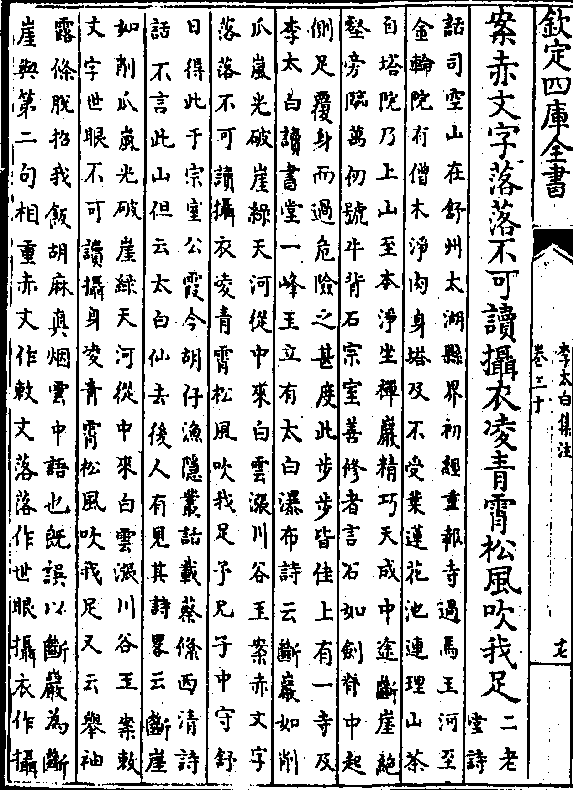 欽定四庫全書
李太白集注
卷三十
案赤文字落落不可讀攝衣凌青霄松風吹我足
二老
堂詩
話司空山在舒州太湖縣界初經重報寺過馬王河至
金輪院有僧本淨肉身塔及不受葉蓮花池連理山茶
自塔院乃上山至本淨坐禪巖精巧天成中途斷崖絕
壑旁臨萬仞號牛背石宗室善修者言石如劍脊中起
側足覆身而過危險之甚度此步步皆佳上有一寺及
李太白讀書堂一峰玉立有太白瀑布詩云斷巖如削
瓜嵐光破崖綠天河從中來白雲漲川谷玉案赤文字
落落不可讀攝衣凌青霄松風吹我足予兄子中守舒
日得此于宗室公霞今胡仔漁隱叢話載蔡絛西清詩
話不言此山但云太白仙去後人有見其詩畧云斷崖
如削瓜嵐光破崖綠天河從中來白雲漲川谷玉案敕
文字世眼不可讀攝身凌青霄松風吹我足又云舉袖
露條脫招我飯胡麻真烟雲中語也既誤以斷巖為斷
崖與第二句相重赤文作敕文落落作世眼攝衣作攝